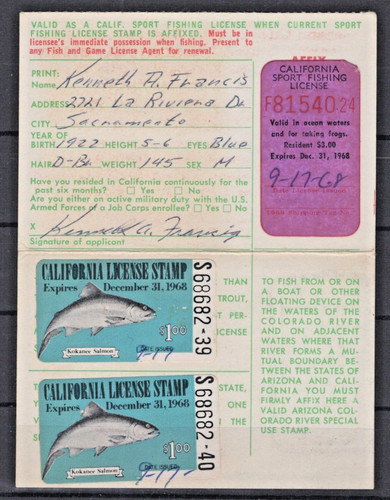 VALID AS A CALIF. SPORT FISHING LICENSE WHEN CURRENT SPORT
FISHING LICENSE STAMP IS AFFIXED. Must be in
licensee's immediate possession when fishing. Present to
any Fish and Game License Agent for renewal.
AFFIX
PRINT:
Name Kenneth A. Francis
ADDRESS 2721 La Riviera Dr
Sacramento
YEAR OF
BIRTH 1922 HEIGHT 5-6 EYES Blue
HAIR D-Br WEIGHT 145 SEX M
Have you resided in California continuously for the
past six months? Yes No
Are you either on active military duty with the U.S.
Armed Forces or a Job Corps enrollee? Yes No
X Kenneth A. Francis
Signature of applicant
CALIFORNIA
SPORT FISHING
LICENSE
F81540 24
Valid in ocean waters
and for taking frogs.
Resident $3.00
Expires Dec. 31, 1968
9-17-68
CALIFORNIA LICENSE STAMP
Expires December 31, 1968
$1.00
Kokanee Salmon
DATE ISSUED
S68682-39
TROUT,
STATE,
CALIFORNIA LICENSE STAMP
Expires December 31, 1968
$1.00
Kokanee Salmon
DATE ISSUED
S68682-40
TO FISH FROM OR ON
A BOAT OR OTHER
FLOATING DEVICE ON
THE WATERS OF THE
COLORADO RIVER
AND ON ADJACENT
WATERS WHERE THAT
RIVER FORMS A MU-
TUAL BOUNDARY
BETWEEN THE STATES
OF ARIZONA AND CALI-
FORNIA YOU MUST
FIRMLY AFFIX HERE A
VALID ARIZONA COL-
ORADO RIVER SPECIAL
USE STAMP.